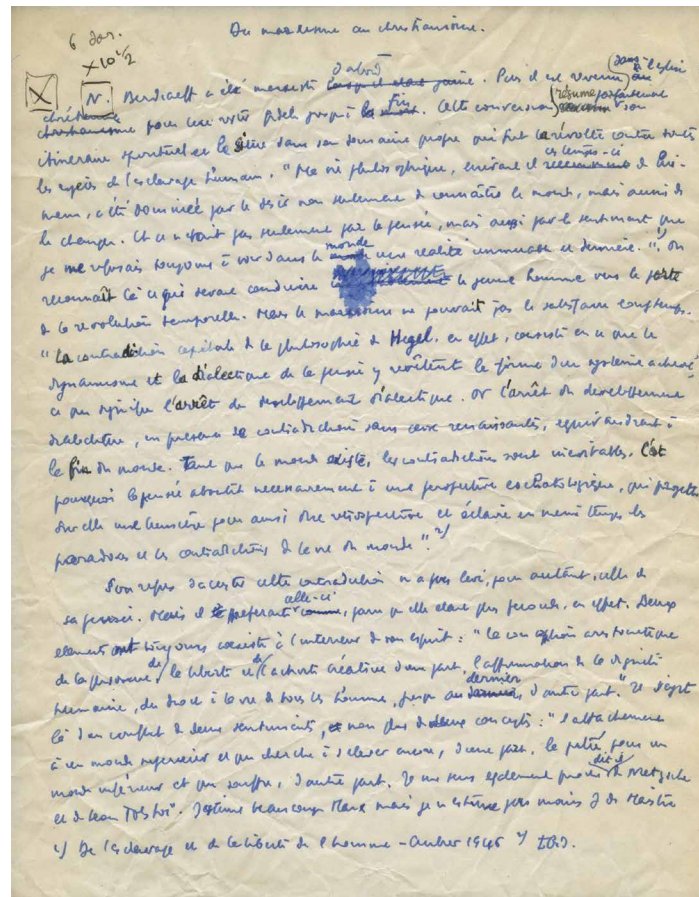 Du marxisme au christianisme.
6 Jas.
X 10 1/2
X N. Berdiaeff a été marxiste d'abord. Puis il est revenu au dans l'église
chrétienne pour lui rester fidèle jusqu'à la fin. Cette conversion résume parfaitement son
itinéraire spirituel et le situe dans son domaine propre qui fut la révolte contre toutes
les espèces de l'esclavage humain. "Ma vie philosophique, écrivait il ces temps-ci de lui-
même, a été dominée par le désir non seulement de connaître le monde, mais aussi de
le changer. Et ce n'était pas seulement par la pensée, mais aussi par le sentiment que
je me refusais toujours à voir dans le monde une réalité immuable et dernière." 1) On
reconnaît là ce qui devait conduire le jeune homme vers la porte
de la révolution temporelle. Mais le marxisme ne pouvait pas le satisfaire longtemps.
"La contradiction capitale de la philosophie de Hegel, en effet, consiste en ce que le
dynamisme et la dialectique de la pensée y revêtent la forme d'un système achevé,
ce qui signifie l'arrêt du développement dialectique. Or l'arrêt du développement
dialectique, en présence de contradictions sans cesse renaissantes, équivaudrait à
la fin du monde. Tant que le monde existe, les contradictions sont inévitables. C'est
pourquoi la pensée aboutit nécessairement à une perspective eschatologique, qui projette
sur elle une lumière pour ainsi dire rétrospective et éclaire en même temps les
paradoxes et les contradictions de la vie du monde". 2)
Son refus d'accepter cette contradiction n'a pas levé, pour autant, celle de
sa pensée. Mais il préférait celle-ci, parce qu'elle était plus féconde, en effet. Deux
éléments ont toujours coexisté à l'intérieur de son esprit: "la conception aristocratique
de la personne, de la liberté et de l'activité créatrice d'une part, l'affirmation de la dignité
humaine, du droit à la vie de tous les hommes, jusqu'au dernier d'autre part." Il s'agit
là d'un conflit de deux sentiments, non plus de deux concepts: "l'attachement
à un monde supérieur et qui cherche à s'élever encore, d'une part, la pitié pour un
monde inférieur et qui souffre, d'autre part. Je me sens également proche dit-il de Nietzsche
et de Léon Tolstoï". J'estime beaucoup Marx mais je n'estime pas moins J de Maistre
1) De l'esclavage et de la liberté de l'homme - Aubier 1946 2) Ibid.